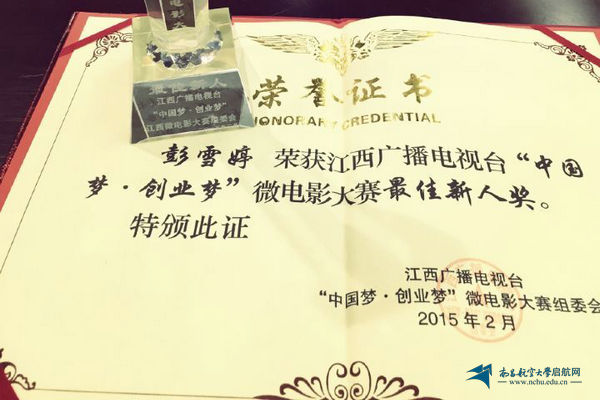 电影大
最佳新人
江西广播电视台
“中国梦·创业梦”
江西微电影大赛组委会
荣誉证书
HONORARY CREDENTIAL
彭雪婷 荣获江西广播电视台“中国
梦·创业梦”微电影大赛最佳新人奖。
特颁此证
江西广播电视台
“中国梦·创业梦”微电影大赛组委会
2015年2月
南昌航空大学启航网
www.nchu.edu.cn